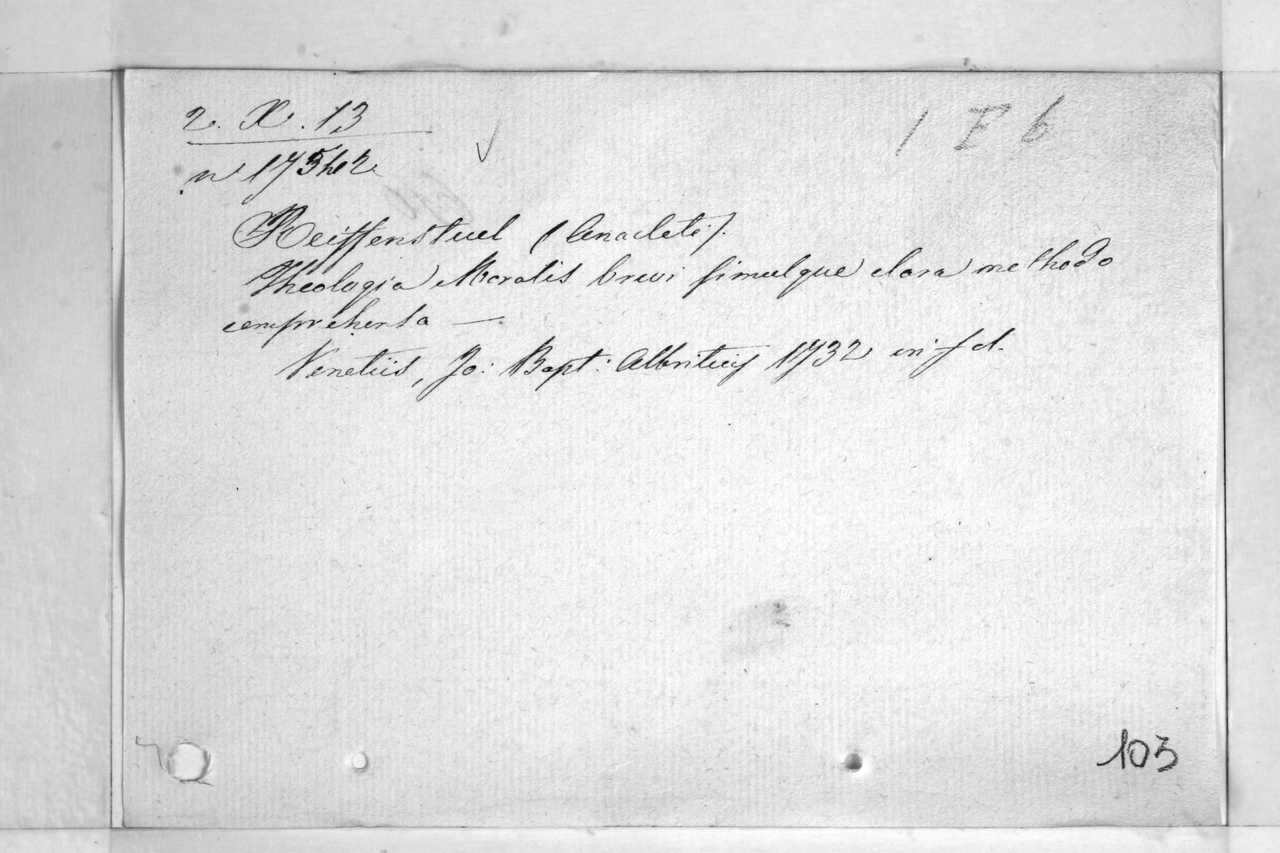 2. X. 13
1 F 6
n 17542
Reiffenstuel (Anacleti).
Theologia Moralis brevi simulque clara methodo
comprehensa —
Venetiis, Jo: Bapt: Albritiuj 1732 in fol.
103